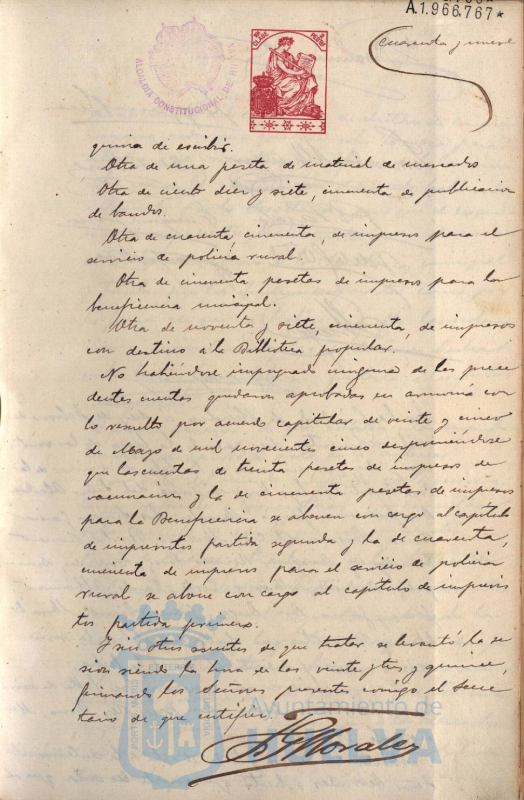 A.1.966.767*
Cuarenta y nueve
ALCALDIA CONSTITUCIONAL DE HUELVA
quina de escribir.
Otra de una peseta de material de mercados
Otra de ciento diez y siete, cincuenta de publicacion
de bandos.
Otra de cuarenta, cincuenta, de impresos para el
servicio de policia rural.
Otra de cincuenta pesetas de impresos para la
beneficencia municipal.
Otra de noventa y siete, cincuenta, de impresos
con destino á la Biblioteca popular.
No habiéndose impugnado ninguna de las prece
dentes cuentas quedaron aprobadas en armonia con
lo resuelto por acuerdo capitular de veinte y cinco
de Mayo de mil novecientos cinco disponiéndose
que las cuentas de treinta pesetas de impresos de
vacunacion y la de cincuenta pesetas de impresos
para la Beneficencia se abonen con cargo al capitulo
de imprevistos partida segunda y la de cuarenta,
cincuenta de impresos para el servicio de policia
rural se abone con cargo al capitulo de imprevis
tos partida primera.
Y sin otros asuntos de que tratar se levantó la se
sion siendo la hora de las veinte y tres y quince,
firmando los Señores presentes conmigo el Secre
tario de que certifico.
Morales
Ayuntamiento de
HUELVA